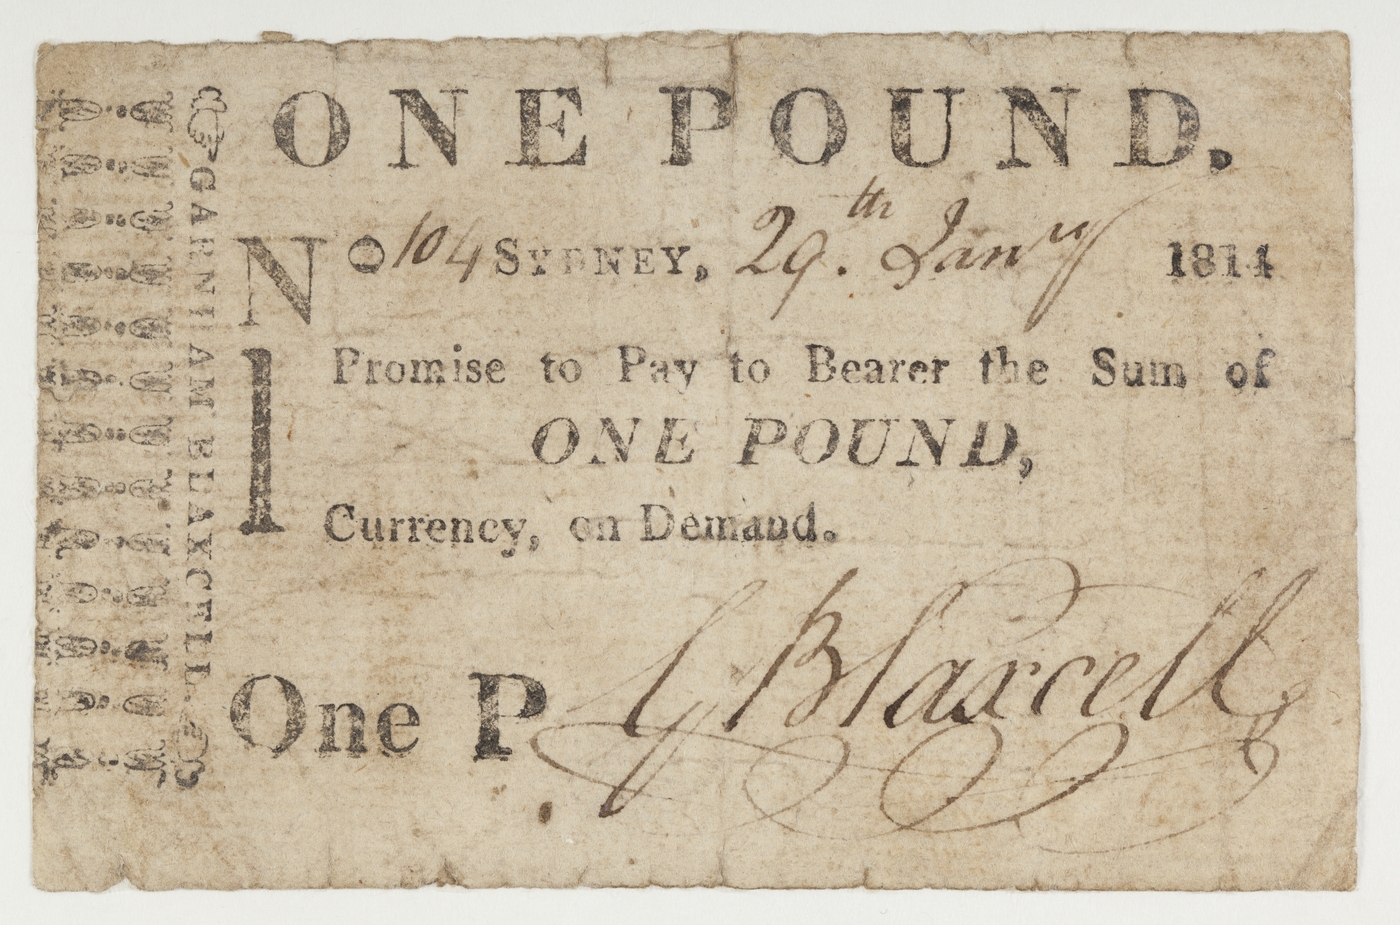 ONE POUND.
No 104 SYDNEY, 29.th Jany 1814
I Promise to Pay to Bearer the Sum of
ONE POUND,
Currency, on Demand.
One P. G Blaxcell
GARNHAM BLAXCELL.